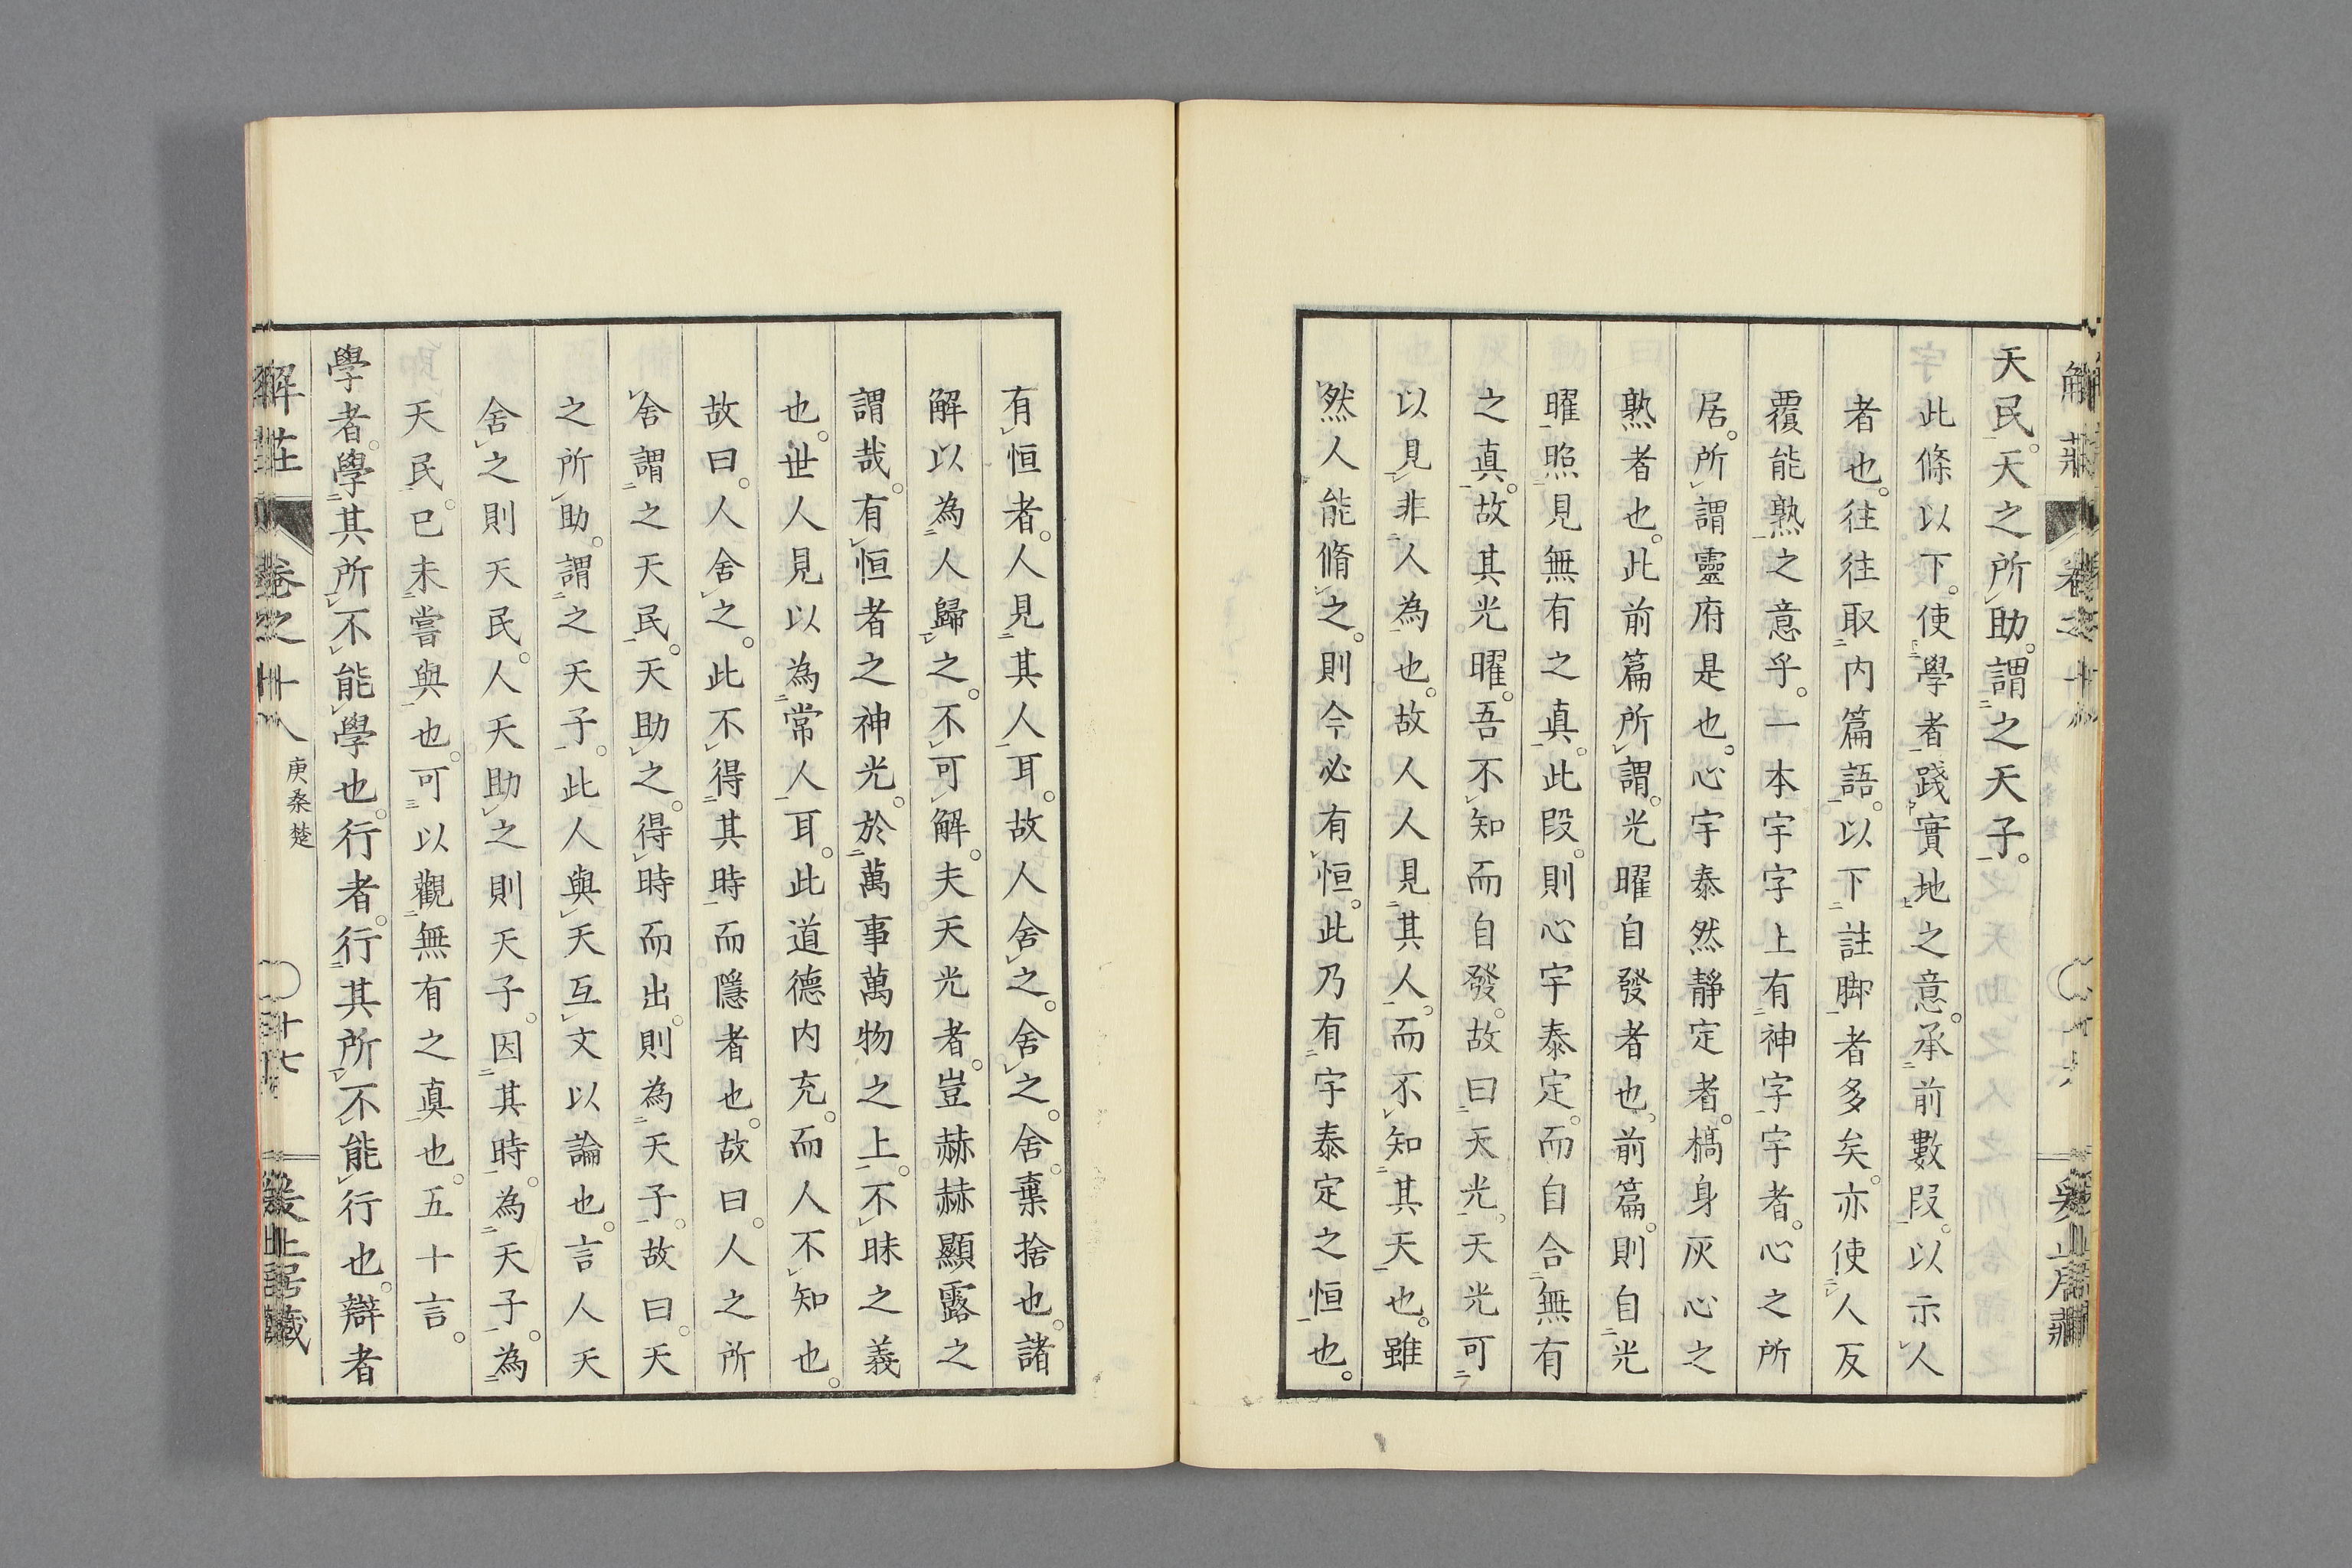 天民。天之所助。謂之天子。
此條以下。使學者踐實地之意。承前數段。以示人
者也。往往取内篇語。以下註脚者多矣。亦使人反
覆能熟之意乎。一本宇字上有神字。宇者。心之所
居。所謂靈府是也。心宇泰然靜定者。槁身灰心之
熟者也。此前篇所謂。光曜自發者也。前篇。則自光
曜照見無有之真。此段。則心宇泰定。而自合無有
之真。故其光曜。吾不知而自發。故曰天光。天光可
以見非人為也。故人人見其人。而不知其天也。雖
然人能脩之。則今必有恒。此乃有宇泰定之恒也。
有恒者。人見其人耳。故人舍之。舍之。舍棄捨也。諸
解以為人歸之。不可解。夫天光者。豈赫赫顯露之
謂哉。有恒者之神光。於萬事萬物之上。不昧之義
也。世人見以為常人耳。此道德内充。而人不知也。
故曰。人舍之。此不得其時而隱者也。故曰。人之所
舍謂之天民。天助之。得時而出。則為天子。故曰。天
之所助。謂之天子。此人與天互文以論也。言人天
舍之則天民。人天助之則天子。因其時。為天子。為
天民。已未嘗與也。可以觀無有之真也。五十言。
學者。學其所不能學也。行者。行其所不能行也。辯者
解莊
卷之十八
庚桑楚
十七